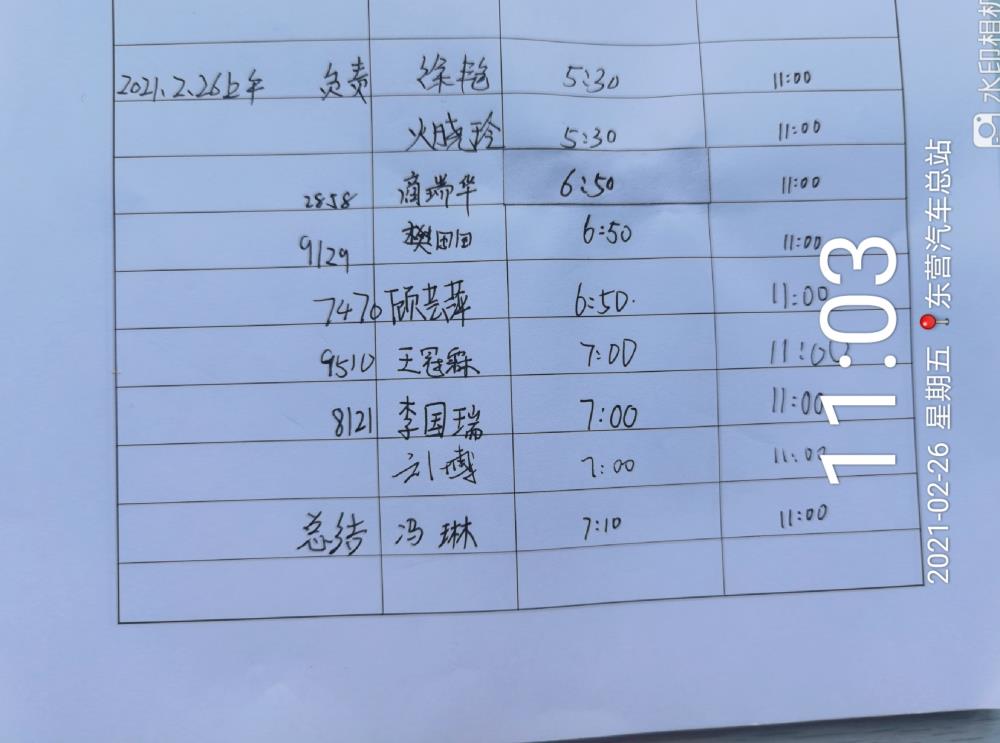 2021.2.26上午 负责 徐艳 5:30 11:00
火晓玲 5:30 11:00
2858 商瑞华 6:50 11:00
9129 樊田田 6:50 11:00
7470 顾芸萍 6:50. 11:00
9510 王冠霖 7:00 11:00
8121 李国瑞 7:00 11:00
刘博 7:00 11:00
总结 冯琳 7:10 11:00
11:03
2021-02-26 星期五 东营汽车总站
水印相机